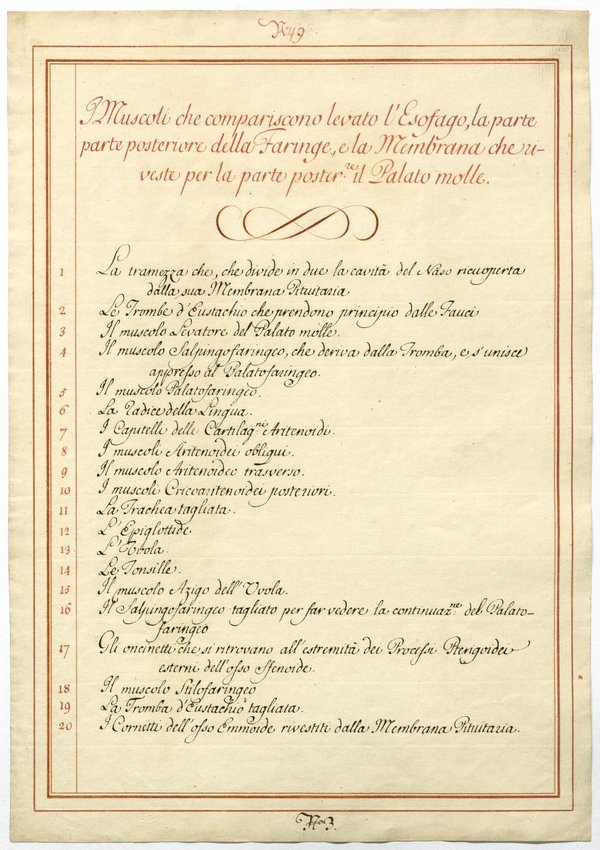 No 49
I Muscoli che compariscono levato l'Esofago, la parte
parte posteriore della Faringe, e la Membrana che ri-
veste per la parte poster.re il Palato molle.
1 La tramezza che, che divide in due la cavità del Naso ricuoperta
dalla sua Membrana Pituitaria
2 Le Trombe d'Eustachio che prendono principio dalle Fauci
3 Il muscolo Levatore del Palato molle.
4 Il muscolo Salpingofaringeo, che deriva dalla Tromba, e s'unisce
appresso al Palatofaringeo.
5 Il muscolo Palatofaringeo.
6 La Radice della Lingua.
7 I Capitelli delle Cartilag.ni Aritenoidi.
8 I muscoli Aritenoidei obliqui.
9 Il muscolo Aritenoideo trasverso.
10 I muscoli Cricoaritenoidei posteriori.
11 La Trachea tagliata.
12 L'Epiglottide
13 L'Uvola.
14 Le Tonsille.
15 Il muscolo Azigo dell'Uvola.
16 Il Salpingofaringeo tagliato per far vedere la continuaz.ne del Palato-
faringeo
17 Gli oncinetti che si ritrovano all'estremità dei Processi Pterigoidei
esterni dell'osso Sfenoide.
18 Il muscolo Stilofaringeo
19 La Tromba d'Eustachio tagliata.
20 I Cornetti dell'osso Etmoide rivestiti dalla Membrana Pituitaria.